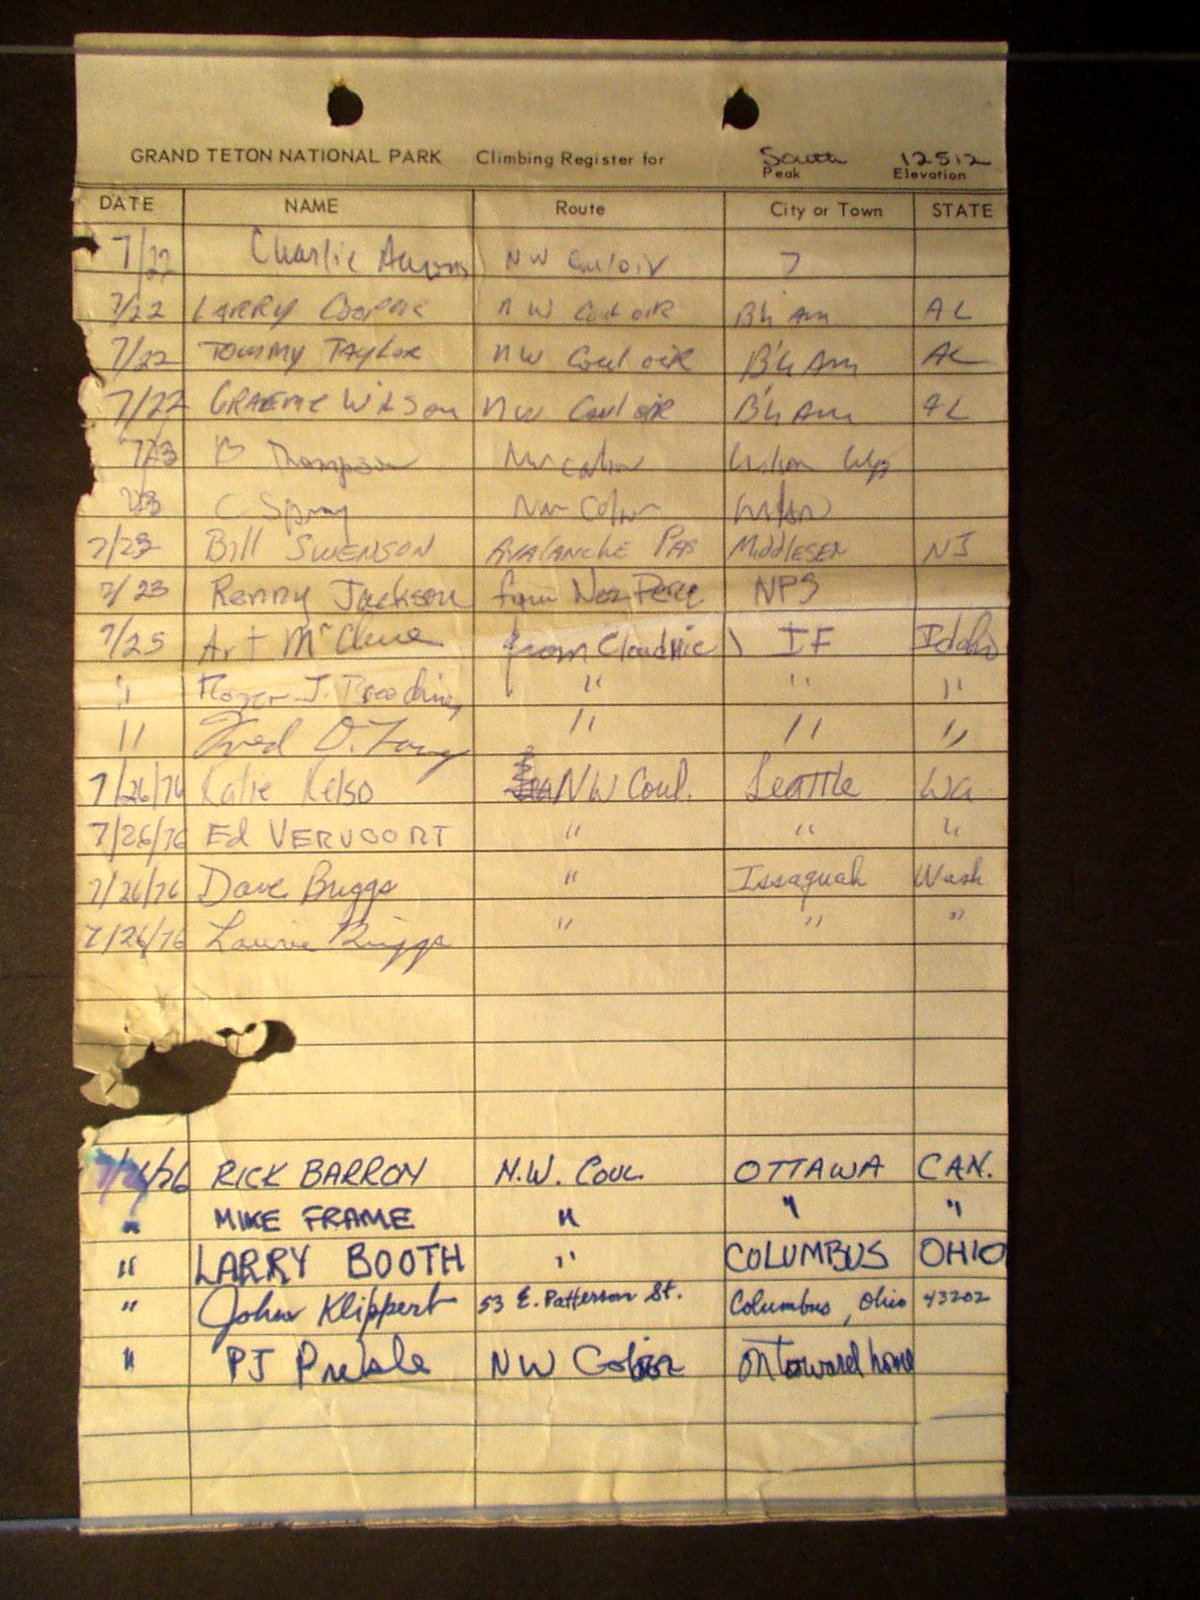 GRAND TETON NATIONAL PARK Climbing Register for South 12512
Peak Elevation
DATE NAME Route City or Town STATE
7/22 Charlie NW ?
7/22 LARRY COOPER NW Couloir B'h Am AL
7/22 TOMMY TAYLOR NW Couloir B'h Am AL
7/22 GRAEME WILSON NW Couloir B'h Am AL
7/23 Thompson Wilson
C
7/23 Bill SWENSON AVALANCHE Middlesex NJ
7/23 Renny Jackson from Nez Perce NPS
7/25 Art McClure from IF Idaho
" Roger J. " " "
" Fred O. " " "
7/26/76 Katie Kelso NW Coul. Seattle Wa
7/26/76 Ed VERVOORT " " "
7/26/76 Dave Briggs " Issaquah Wash
7/26/76 Laurie Briggs " " "
7/26/76 RICK BARRON N.W. COUL. OTTAWA CAN.
" MIKE FRAME " " "
" LARRY BOOTH " COLUMBUS OHIO
" John Klippert 53 E. Patterson St. Columbus, Ohio 43202
" PJ NW on toward home